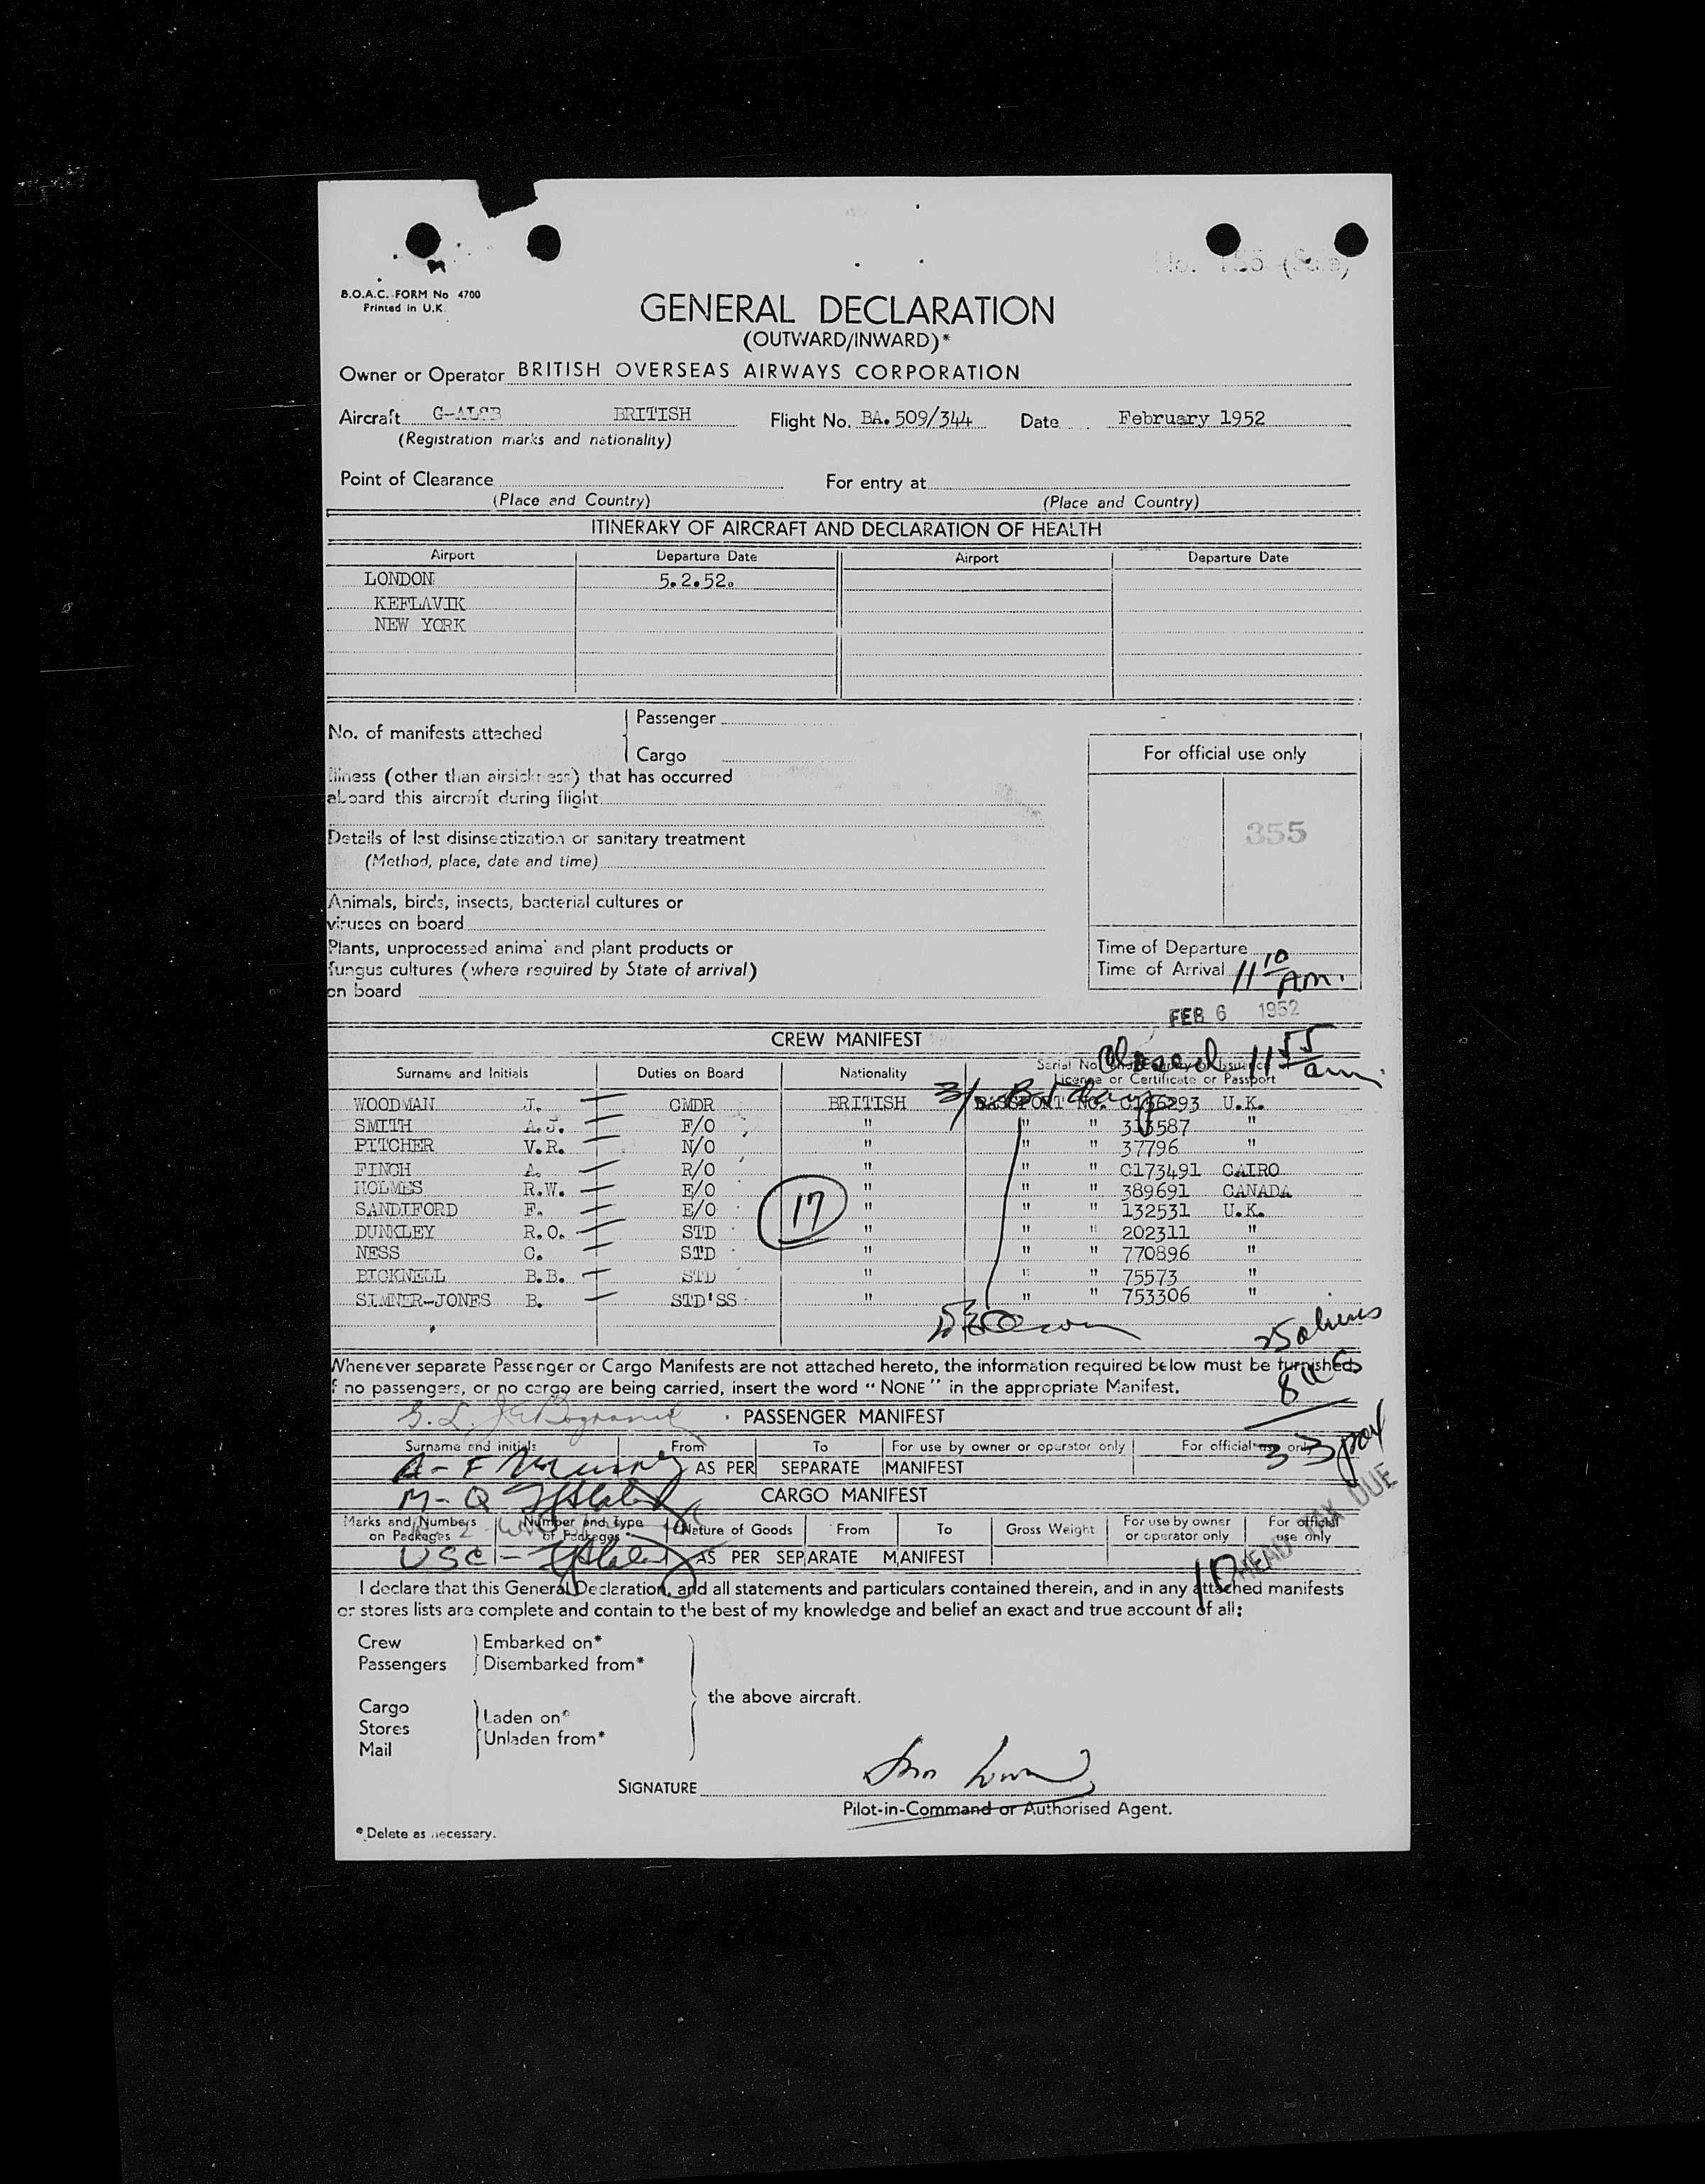 B.O.A.C. FORM No 4700
Printed in U.K.
GENERAL DECLARATION
(OUTWARD/INWARD)*
Owner or Operator BRITISH OVERSEAS AIRWAYS CORPORATION
Aircraft BRITISH Flight No. BA. 509/344 Date February 1952
(Registration marks and nationality)
Point of Clearance For entry at
(Place and Country) (Place and Country)
ITINERARY OF AIRCRAFT AND DECLARATION OF HEALTH
Airport Departure Date Airport Departure Date
LONDON 5.2.52.
KEFLAVIK
NEW YORK
No. of manifests attached
Passenger
Cargo
For official use only
Illness (other than airsickness) that has occurred
aboard this aircraft during flight
355
Details of last disinsectization or sanitary treatment
(Method, place, date and time)
Animals, birds, insects, bacterial cultures or
viruses on board
Plants, unprocessed animal and plant products or
fungus cultures (where required by State of arrival)
on board
Time of Departure
Time of Arrival 11 10 AM.
FEB 6 1952
CREW MANIFEST
Closed 11 55 am.
Surname and Initials Duties on Board Nationality Serial No. and Country of Issuance
Licence or Certificate or Passport
WOODMAN J. CMDR BRITISH PASSPORT NO. C156293 U.K.
SMITH A.J. F/O " " " 313587 "
PITCHER V.R. N/O " " " 37796 "
FINCH A. R/O " " " C173491 CAIRO
HOLMES R.W. E/O " " " 389691 CANADA
SANDIFORD F. E/O " " " 132531 U.K.
17
DUNKLEY R.O. STD " " " 202311 "
NESS C. STD " " " 770896 "
BICKNELL B.B. STD " " " 75573 "
SIMNER-JONES B. STD'SS " " " 753306 "
25 aliens
Whenever separate Passenger or Cargo Manifests are not attached hereto, the information required below must be furnished.
If no passengers, or no cargo are being carried, insert the word "NONE" in the appropriate Manifest.
8 USC
PASSENGER MANIFEST
Surname and initials From To For use by owner or operator only For official use only
33 pax
A-F AS PER SEPARATE MANIFEST
M-Q
CARGO MANIFEST
HEAD TAX DUE
Marks and Numbers on Packages Number and Type of Packages Nature of Goods From To Gross Weight For use by owner or operator only For official use only
USC- AS PER SEPARATE MANIFEST
10
I declare that this General Declaration, and all statements and particulars contained therein, and in any attached manifests
or stores lists are complete and contain to the best of my knowledge and belief an exact and true account of all:
Crew Embarked on*
Passengers Disembarked from*
the above aircraft.
Cargo
Stores Laden on*
Mail Unladen from*
SIGNATURE
Pilot-in-Command or Authorised Agent.
* Delete as necessary.